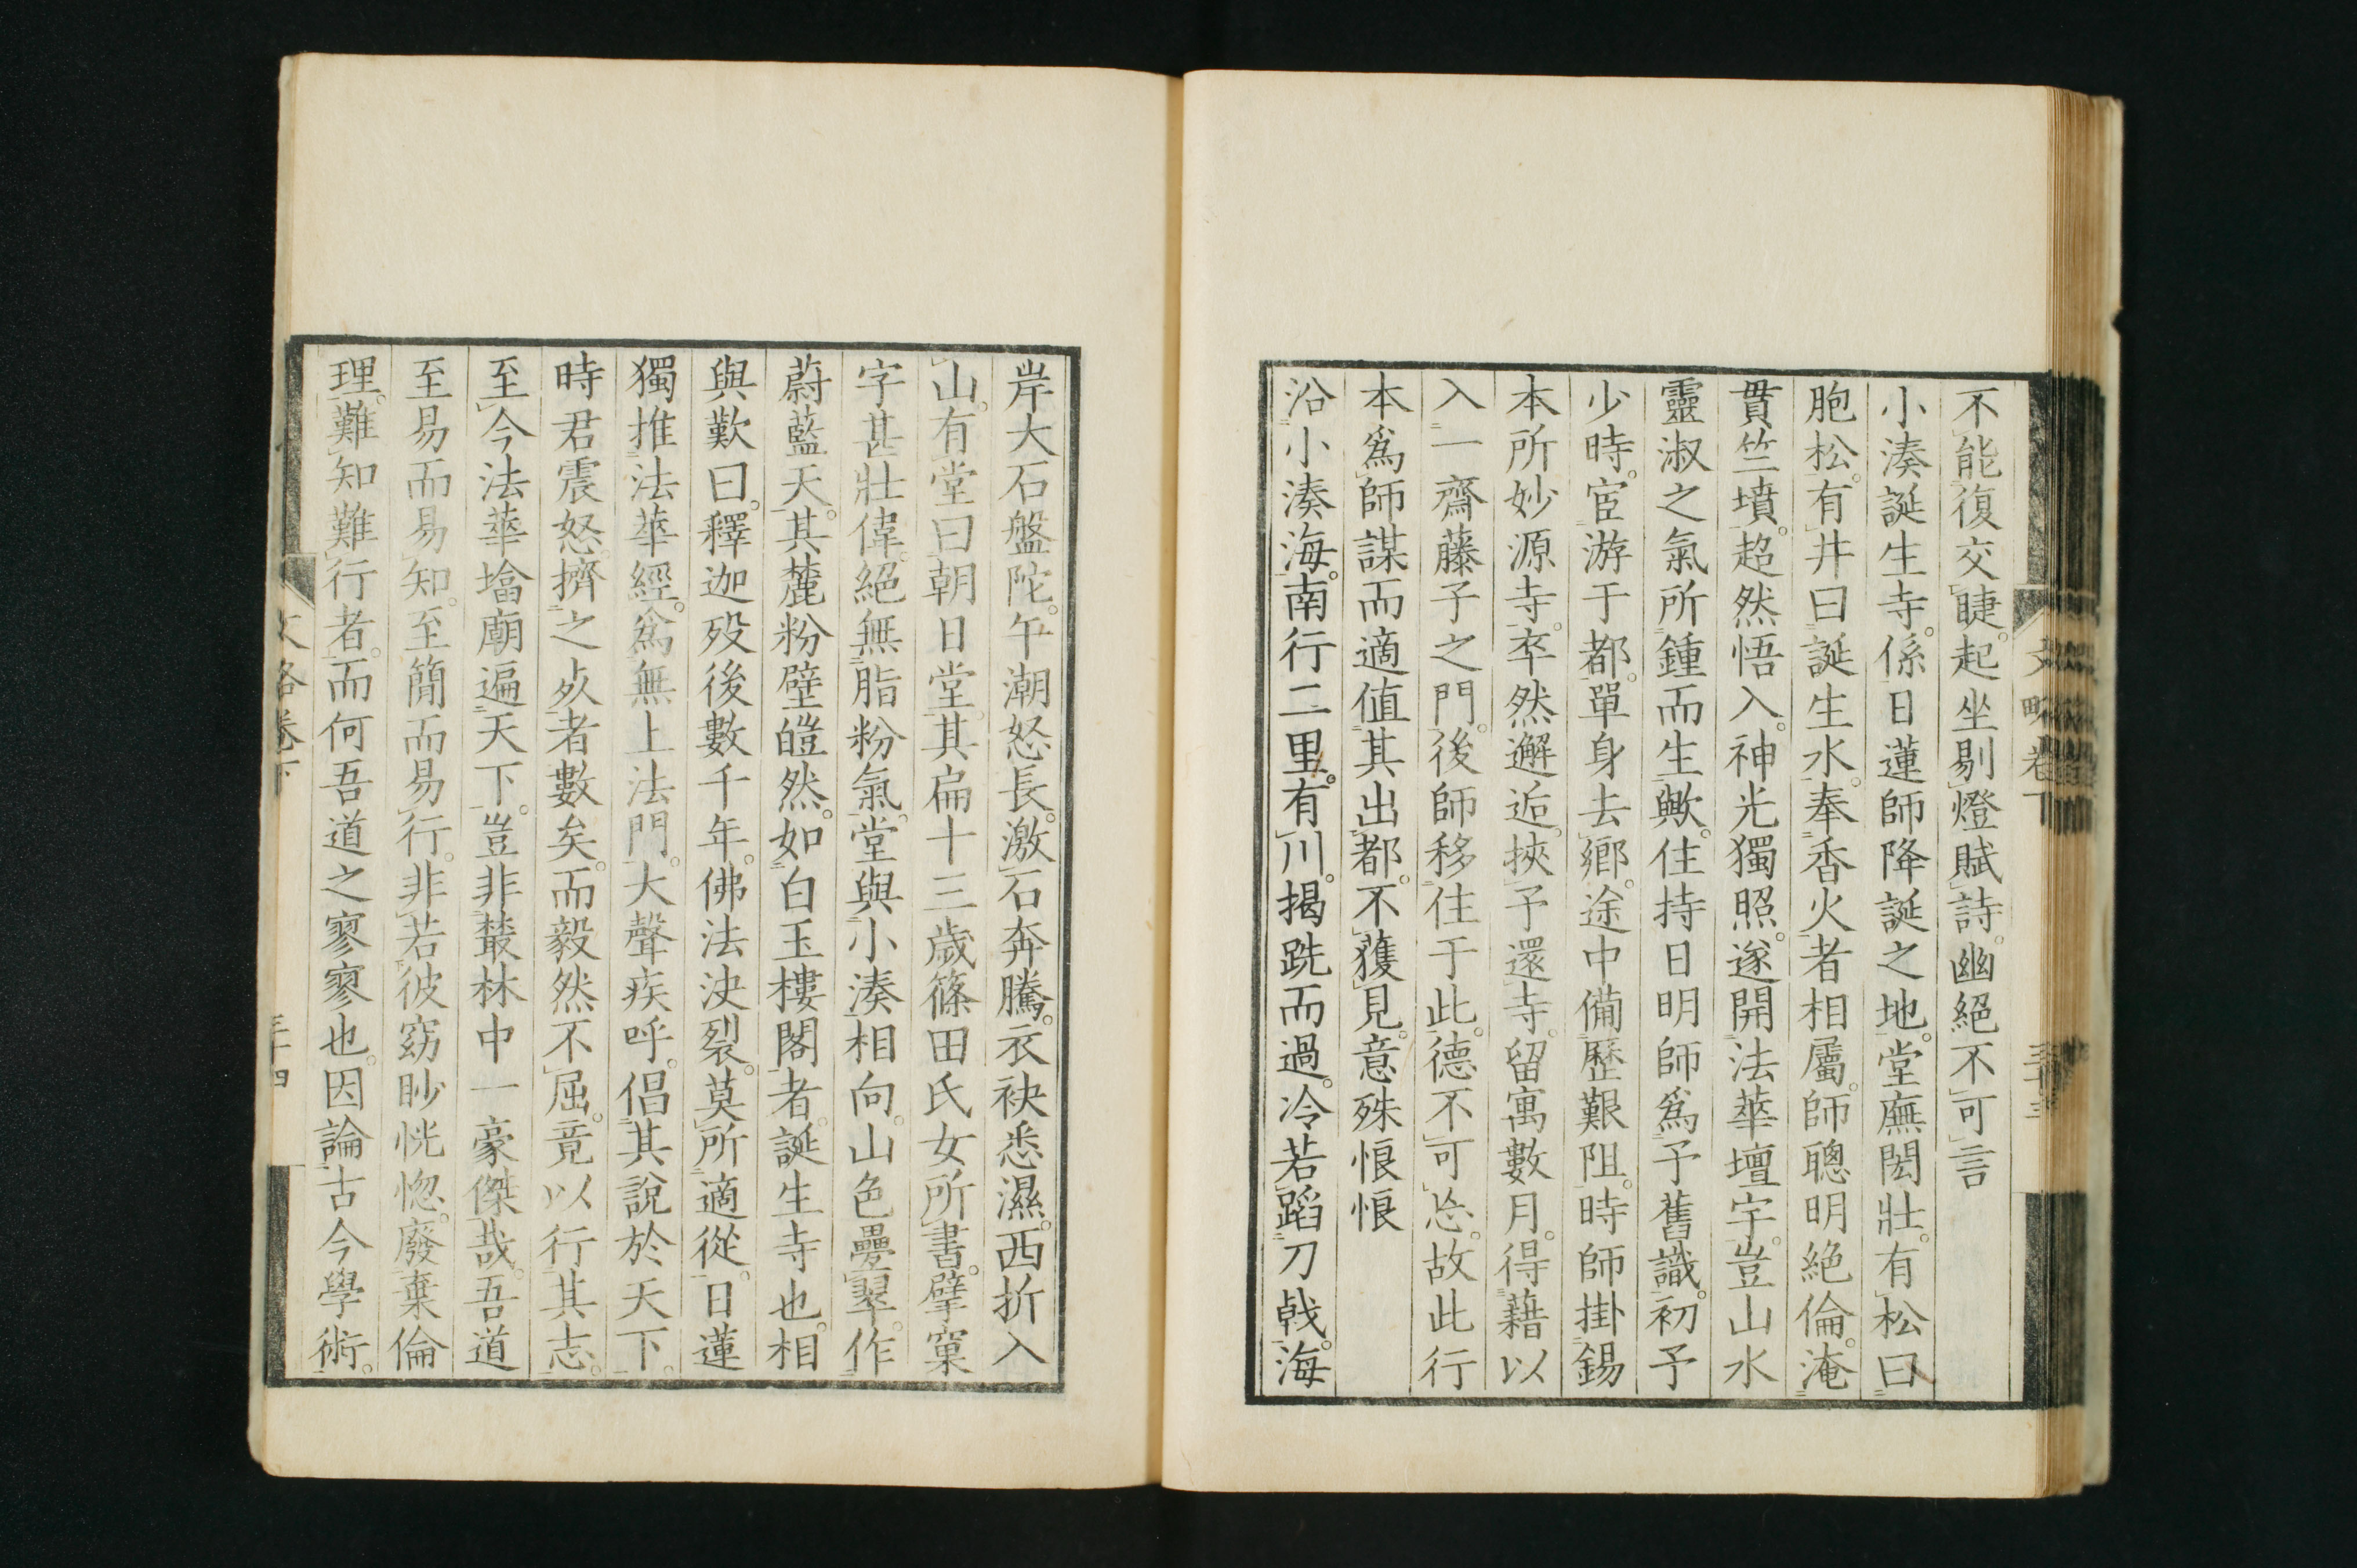 不能復交睫。起坐剔燈賦詩。幽絕不可言
小湊誕生寺。係日蓮師降誕之地。堂廡閎壯。有松曰
胞松。有井曰誕生水。奉香火者相屬。師聰明絕倫。淹
貫竺墳。超然悟入。神光獨照。遂開法華壇宇。豈山水
靈淑之氣所鍾而生歟。住持日明師爲予舊識。初予
少時。宦游于都。單身去鄉。途中備歷艱阻。時師掛錫
本所妙源寺。卒然邂逅。挾予還寺。留寓數月。得藉以
入一齋藤子之門。後師移住于此。德不可忘。故此行
本爲師謀而適值其出都。不獲見。意殊悢悢
沿小湊海。南行二里。有川。揭跣而過。冷若蹈刀戟。海
文略卷下
三十三
岸大石盤陀。午潮怒長。激石奔騰。衣袂悉濕。西折入
山。有堂曰朝日堂。其扁十三歲篠田氏女所書。擘窠
字甚壯偉。絕無脂粉氣。堂與小湊相向。山色疊翠。作
蔚藍天。其麓粉壁皚然。如白玉樓閣者。誕生寺也。相
與歎曰。釋迦歿後數千年。佛法決裂。莫所適從。日蓮
獨推法華經。爲無上法門。大聲疾呼。倡其說於天下。
時君震怒。擠之㱙者數矣。而毅然不屈。竟以行其志。
至今法華塔廟遍天下。豈非叢林中一豪傑哉。吾道
至易而易知。至簡而易行。非若彼窈眇恍惚。廢棄倫
理。難知難行者。而何吾道之寥寥也。因論古今學術。
文略卷下
三十四